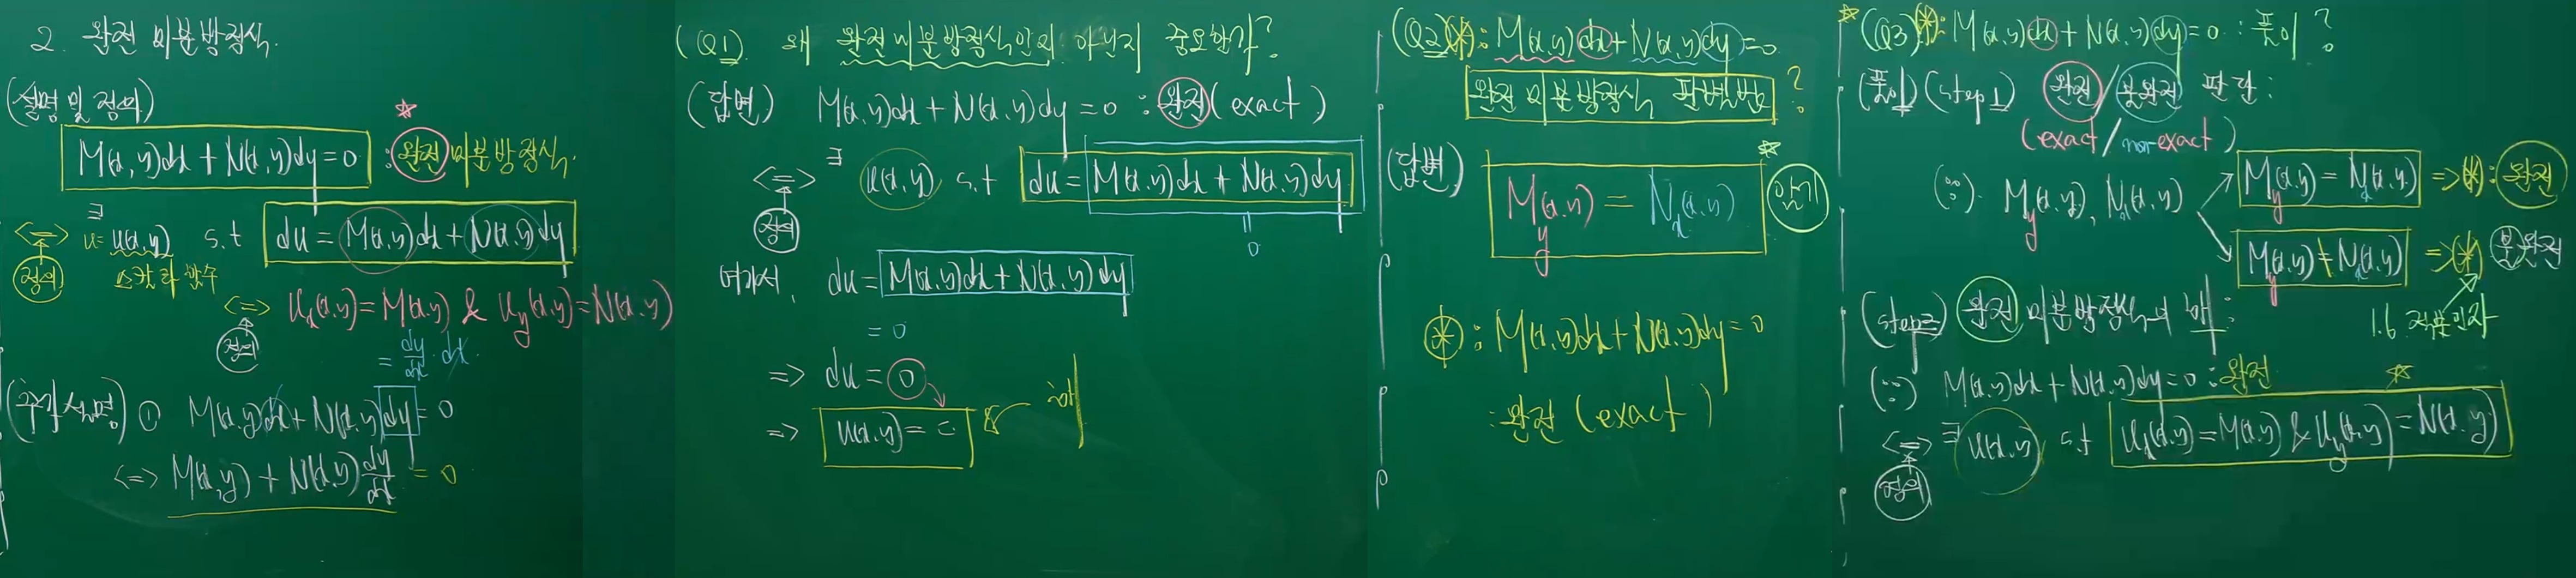 2. 완전 미분방정식.
(설명 및 정의)
M(x,y)dx + N(x,y)dy = 0 : 완전 미분방정식.
<=> ∃ u=u(x,y) s.t du = M(x,y)dx + N(x,y)dy
정의
<=> u_x(x,y) = M(x,y) & u_y(x,y) = N(x,y)
정의
= dy/dx · dx.
(추가설명) ① M(x,y)dx + N(x,y)dy = 0
<=> M(x,y) + N(x,y) dy/dx = 0
(Q1) 왜 완전미분방정식인지 아닌지 중요한가?
(답변) M(x,y)dx + N(x,y)dy = 0 : 완전(exact)
<=> ∃ u(x,y) s.t du = M(x,y)dx + N(x,y)dy
정의
= 0
여기서, du = M(x,y)dx + N(x,y)dy
= 0
=> du = 0
=> u(x,y) = c 해
(Q2) (*) : M(x,y)dx + N(x,y)dy = 0
완전미분방정식 판별법 ?
(답변) M_y(x,y) = N_x(x,y) 암기
(*) : M(x,y)dx + N(x,y)dy = 0
: 완전 (exact)
(Q3) (*) : M(x,y)dx + N(x,y)dy = 0 : 풀이?
(풀이) (step1) 완전/불완전 판단 :
(exact/non-exact)
(∵) M_y(x,y), N_x(x,y)
M_y(x,y) = N_x(x,y) => (*) : 완전
M_y(x,y) ≠ N_x(x,y) => (*) 불완전
1.6 적분인자
(step2) 완전미분방정식의 해 :
(∵) M(x,y)dx + N(x,y)dy = 0 : 완전
<=> ∃ u(x,y) s.t u_x(x,y) = M(x,y) & u_y(x,y) = N(x,y)
정의